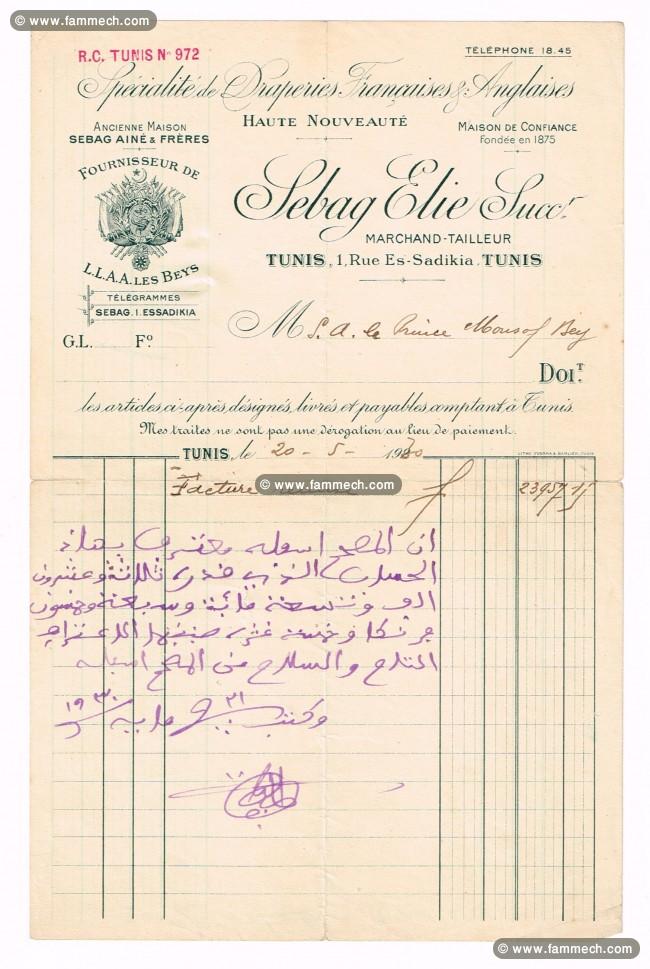 © www.fammech.com
© www.fammech.com
R.C. TUNIS Nº 972
TÉLÉPHONE 18.45
Spécialité de Draperies Françaises & Anglaises
HAUTE NOUVEAUTÉ
ANCIENNE MAISON
SEBAG AINÉ & FRÈRES
MAISON DE CONFIANCE
Fondée en 1875
FOURNISSEUR DE
L.L.A.A. LES BEYS
Sebag Elie Succr.
MARCHAND-TAILLEUR
TUNIS, 1, Rue Es-Sadikia, TUNIS
TÉLÉGRAMMES
SEBAG. 1. ESSADIKIA
M S. A. le Prince Monsof Bey
G.L. Fº
DOIT.
les articles ci-après désignés, livrés et payables comptant à Tunis.
Mes traites ne sont pas une dérogation au lieu de paiement.
TUNIS, le 20 - 5 - 1930
© www.fammech.com
Facture 23957 15
ان المصحح اسفله معترف بهاذ
الحساب الذي قدره ثلاثة وعشرون
الف وتسعة مائة وسبعة وخمسون
فرنكا وخمسة عشر
والسلام من المصحح اسفله
وكتب في ٢١ مايه ١٩٣٠
© www.fammech.com
© www.fammech.com